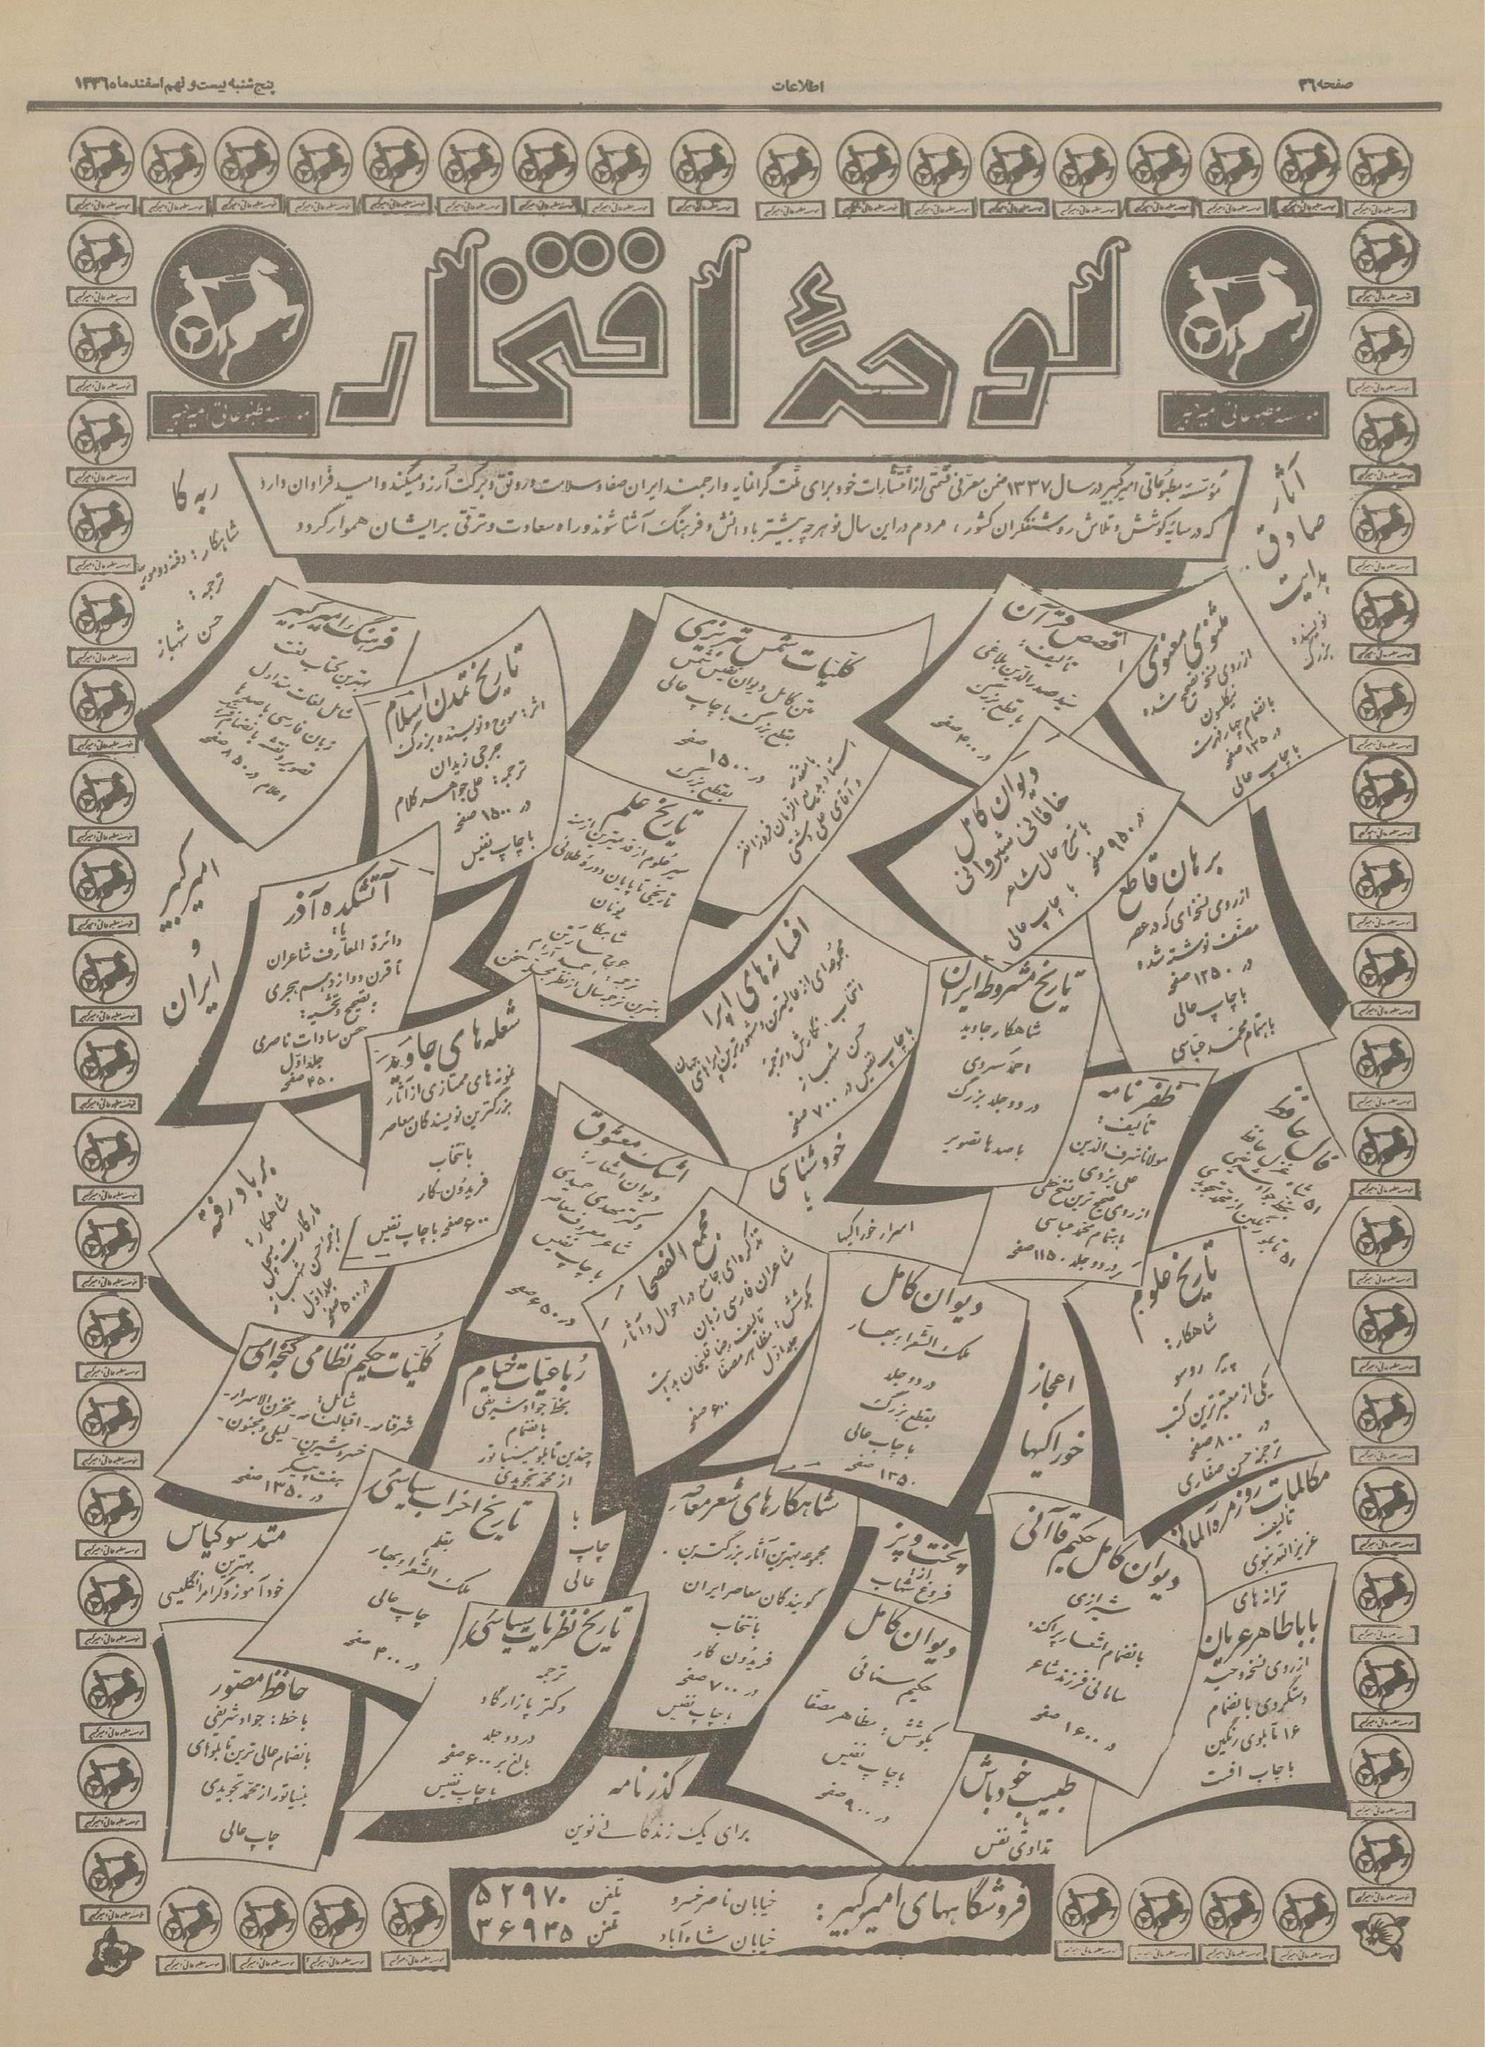 صفحه ۳۶
اطلاعات
پنج شنبه بیست و نهم اسفند ماه ۱۳۳۶
لوحهٔ افتخار
موسسه مطبوعاتی امیرکبیر
موسسه مطبوعاتی امیرکبیر
مؤسسه مطبوعاتی امیرکبیر در سال ۱۳۳۷ ضمن معرفی قسمتی از انتشارات خود برای ملت گرانمایه و ارجمند ایران صفا و سلامت و رونق و برکت آرزو میکند و امید فراوان دارد
که در سایه کوشش و تلاش روشنفکران کشور ، مردم در این سال نو هر چه بیشتر با دانش و فرهنگ آشنا شوند و راه سعادت و ترقی برایشان هموار گردد
آثار
صادق
هدایت
نویسنده
بزرگ
ربه کا
شاهکار: دفنه دوموریه
ترجمه:
حسن شهباز
مثنوی معنوی
از روی نسخه تصحیح شده
نیکلسون
بانضمام چهار فهرست
در ۱۳۵۰ صفحه
با چاپ عالی
قصص قرآن
تالیف:
سید صدرالدین بلاغی
با قطع بزرگ
در ۴۰۰ صفحه
کلیات شمس تبریزی
متن کامل دیوان نفیس شمس
بقطع بزرگ با چاپ عالی
در ۱۵۰۰ صفحه
بقطع بزرگ
با مقدمه
استاد بدیع الزمان فروزانفر
و آقای علی دشتی
تاریخ تمدن اسلام
اثر: مورخ و نویسنده بزرگ
جرجی زیدان
ترجمه: علی جواهر کلام
در ۱۵۰۰ صفحه
با چاپ نفیس
فرهنگ امیرکبیر
بهترین کتاب لغت
شامل لغات متداول
زبان فارسی با صدها
تصویر و نقشه بانضمام
اعلام در ۸۵۰ صفحه
دیوان کامل
خاقانی شیروانی
با شرح حال شاعر
با چاپ عالی
در ۹۵۰ صفحه
تاریخ علم
سیر علوم از قدیمترین ازمنه
تاریخی تا پایان دوره طلائی
یونان
شاهکار
جرج سارتن
ترجمه: احمد آرام
بهترین ترجمه سال از نظر مجله سخن
برهان قاطع
از روی نسخه‌ای که در عصر
مصنف نوشته شده
در ۱۲۵۰ صفحه
با چاپ عالی
باهتمام محمد عباسی
امیرکبیر
و
ایران
آتشکده آذر
یا:
دائرة المعارف شاعران
تا قرن دوازدهم هجری
بتصحیح و تحشیه:
حسن سادات ناصری
جلد اول
۴۵۰ صفحه
افسانه های اپرا
مجموعه‌ای از عالیترین و مشهورترین اپراهای جهان
انتخاب ، نگارش و ترجمه
حسن شهباز
با چاپ نفیس در ۷۰۰ صفحه
تاریخ مشروطه ایران
شاهکار جاوید
احمد کسروی
در دو جلد بزرگ
با صدها تصویر
شعله های جاوید
نمونه های ممتازی از آثار
بزرگترین نویسندگان معاصر
بانتخاب
فریدون کار
۶۰۰ صفحه با چاپ نفیس
ظفرنامه
تألیف:
مولانا شرف الدین
علی یزدی
از روی صحیح ترین نسخ خطی
باهتمام محمد عباسی
در دو جلد ۱۱۵۰ صفحه
فال حافظ
خودشناسی
یا
اسرار خوراکیها
اشک معشوق
دیوان اشعار:
دکتر مهدی حمیدی
شاعر معروف معاصر
با چاپ نفیس
در ۶۵۰ صفحه
بر باد رفته
شاهکار:
مارگارت میچل
ترجمه: حسن شهباز
جلد اول
در ۵۰۰ صفحه
مجمع الفصحا
تذکره‌ای جامع در احوال و آثار
شاعران فارسی زبان
تالیف رضا قلیخان هدایت
بکوشش: مظاهر مصفا
جلد اول
۶۰۰ صفحه
دیوان کامل
ملک الشعراء بهار
در دو جلد
بقطع بزرگ
با چاپ عالی
۱۲۵۰ صفحه
اعجاز
خوراکیها
تاریخ علوم
شاهکار:
پیر روسو
یکی از معتبرترین کتب
در ۸۰۰ صفحه
ترجمه حسن صفاری
کلیات حکیم نظامی گنجه‌ای
شامل:
شرفنامه - اقبالنامه - مخزن الاسرار -
خسرو شیرین - لیلی و مجنون -
هفت پیکر
در ۱۳۵۰ صفحه
رباعیات خیام
بخط جواد شریفی
بانضمام
چندین تابلو مینیاتور
از محمد تجویدی
با
چاپ
عالی
مکالمات روزمره آلمانی
تالیف
عزیزالله نبوی
متد سوکیاس
بهترین
خودآموز و گرامر انگلیسی
تاریخ احزاب سیاسی
بقلم
ملک الشعراء بهار
چاپ عالی
در ۴۰۰ صفحه
شاهکارهای شعر معاصر
مجموعه بهترین آثار بزرگترین
گویندگان معاصر ایران
بانتخاب
فریدون کار
در ۷۰۰ صفحه
با چاپ نفیس
پخت و پز
از:
فروغ شهاب
دیوان کامل حکیم قاآنی
شیرازی
بانضمام اشعار پراکنده
سامانی فرزند شاعر
در ۱۶۰۰ صفحه
ترانه های
باباطاهر عریان
از روی نسخه وحید
دستگردی بانضمام
۱۶ تابلوی رنگین
با چاپ افست
دیوان کامل
حکیم سنائی
بکوشش: مظاهر مصفا
با چاپ نفیس
در ۹۰۰ صفحه
تاریخ نظریات سیاسی
ترجمه
دکتر پازارگاد
در دو جلد
بالغ بر ۶۰۰ صفحه
با چاپ نفیس
حافظ مصور
با خط: جواد شریفی
بانضمام عالی ترین تابلوهای
مینیاتور از محمد تجویدی
چاپ عالی
گذرنامه
برای یک زندگانی نوین
طبیب خود باش
یا
تداوی نفس
فروشگاههای امیرکبیر:
خیابان ناصر خسرو تلفن ۵۲۹۷۰
خیابان شاه آباد تلفن ۳۶۹۳۵